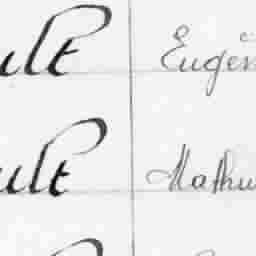 ult Eugèn
ult Mathu